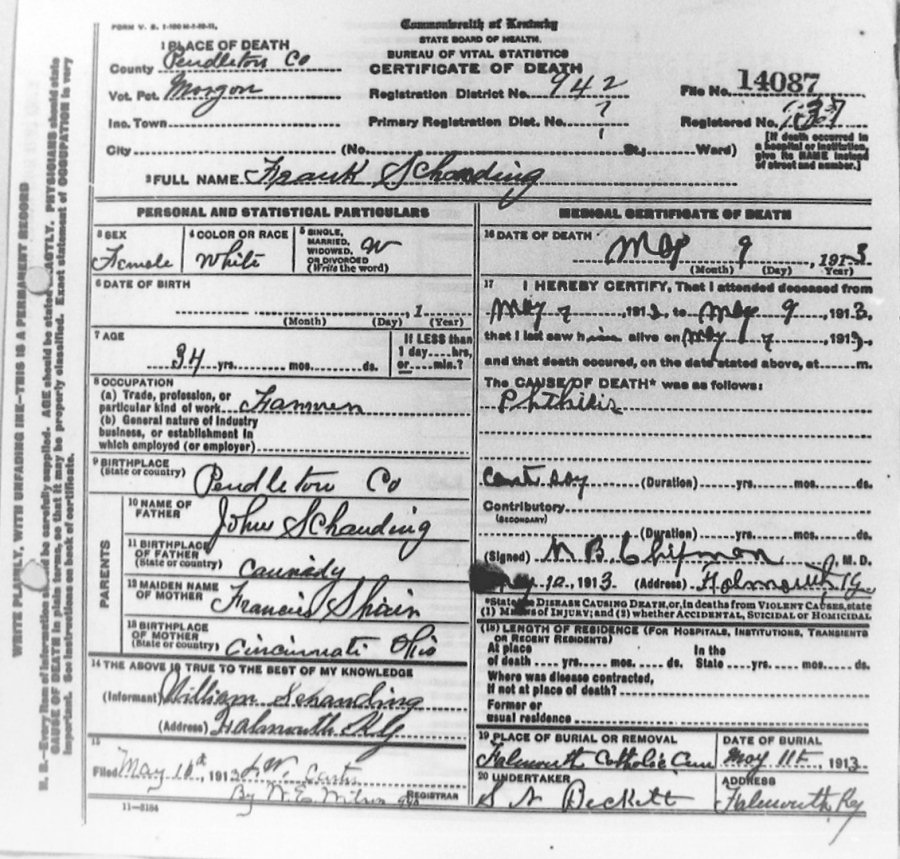 FORM V. S. 1-100 M-1-10-11.
Commonwealth of Kentucky
STATE BOARD OF HEALTH.
BUREAU OF VITAL STATISTICS
CERTIFICATE OF DEATH
1 PLACE OF DEATH
County Pendleton Co
Vot. Pct. Morgon
Inc. Town
City (No. St.; Ward)
Registration District No. 942
Primary Registration Dist. No.
File No. 14087
Registered No.
[If death occurred in a hospital or institution, give its NAME instead of street and number.]
2 FULL NAME Frank Schanding
PERSONAL AND STATISTICAL PARTICULARS
3 SEX
Female
4 COLOR OR RACE
White
5 SINGLE, MARRIED, WIDOWED, OR DIVORCED (Write the word)
W
6 DATE OF BIRTH
, 1
(Month) (Day) (Year)
7 AGE
34 yrs. mos. ds.
If LESS than 1 day hrs, or min.?
8 OCCUPATION
(a) Trade, profession, or particular kind of work Farmer
(b) General nature of industry business, or establishment in which employed (or employer)
9 BIRTHPLACE
(State or country) Pendleton Co
PARENTS
10 NAME OF FATHER John Schanding
11 BIRTHPLACE OF FATHER (State or country)
12 MAIDEN NAME OF MOTHER Francis Shain
13 BIRTHPLACE OF MOTHER (State or country) Cincinnati Ohio
14 THE ABOVE IS TRUE TO THE BEST OF MY KNOWLEDGE
(Informant) William Schanding
(Address) Falmouth Ky
15
Filed May 10th, 1913 J. W.
By W. E. Wilson REGISTRAR
11-5184
MEDICAL CERTIFICATE OF DEATH
16 DATE OF DEATH
May 9, 1913
(Month) (Day) Year)
17 I HEREBY CERTIFY, That I attended deceased from
May 7 1913, to May 9, 1913,
that I last saw him alive on May 7, 1913,
and that death occured, on the date stated above, at m.
The CAUSE OF DEATH* was as follows:
Phthisis
cant say (Duration) yrs. mos. ds.
Contributory
(SECONDARY)
(Duration) yrs. mos. ds.
(Signed) N. B. Chipman M. D.
May 10, 1913 (Address) Falmouth Ky
*State the DISEASE CAUSING DEATH, or, in deaths from VIOLENT CAUSES, state
(1) MEANS OF INJURY; and (2) whether ACCIDENTAL, SUICIDAL or HOMICIDAL
(18) LENGTH OF RESIDENCE (FOR HOSPITALS, INSTITUTIONS, TRANSIENTS OR RECENT RESIDENTS)
At place of death yrs. mos. ds. In the State yrs. mos. ds.
Where was disease contracted,
if not at place of death?
Former or
usual residence
19 PLACE OF BURIAL OR REMOVAL
Falmouth Catholic Cem
DATE OF BURIAL
May 11th, 1913
20 UNDERTAKER
S A Beckett
ADDRESS
Falmouth, Ky
WRITE PLAINLY, WITH UNFADING INK—THIS IS A PERMANENT RECORD
N. B.—Every item of information should be carefully supplied. AGE should be stated EXACTLY. PHYSICIANS should state
CAUSE OF DEATH in plain terms, so that it may be properly classified. Exact statement of OCCUPATION is very
important. See instructions on back of certificate.